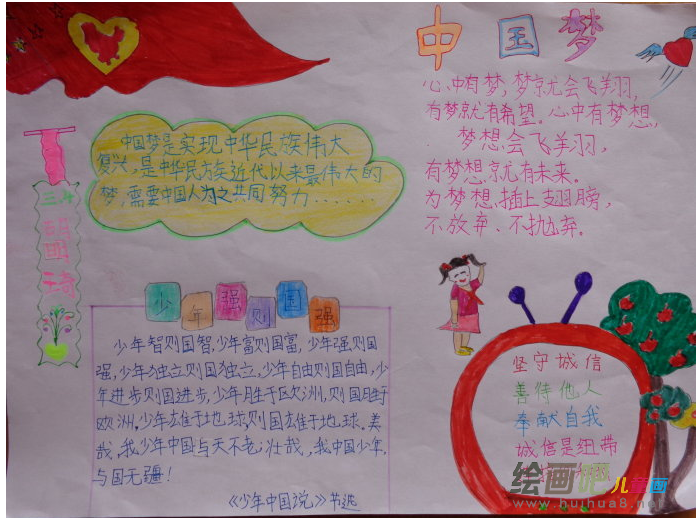 中国梦
心中有梦,梦就会飞羊羽,
有梦就有希望。心中有梦想,
梦想会飞羊羽,
有梦想就有未来。
为梦想插上翅膀,
不放弃、不抛弃。
中国梦是实现中华民族伟大
复兴,是中华民族近代以来最伟大的
梦,需要中国人为之共同努力......
三4
胡明
少年强则国强
少年智则国智,少年富则国富,少年强则国
强,少年独立则国独立.少年自由则国自由,少
年进步则国进步,少年胜于欧洲,则国胜于
欧洲,少年雄于地球,则国雄于地球.美
哉,我少年中国与天不老,壮哉,我中国少年,
与国无疆!
《少年中国说》节选
坚守诚信
善待他人
奉献自我
诚信是纽带
绘画吧儿童画
www.huihua8.net